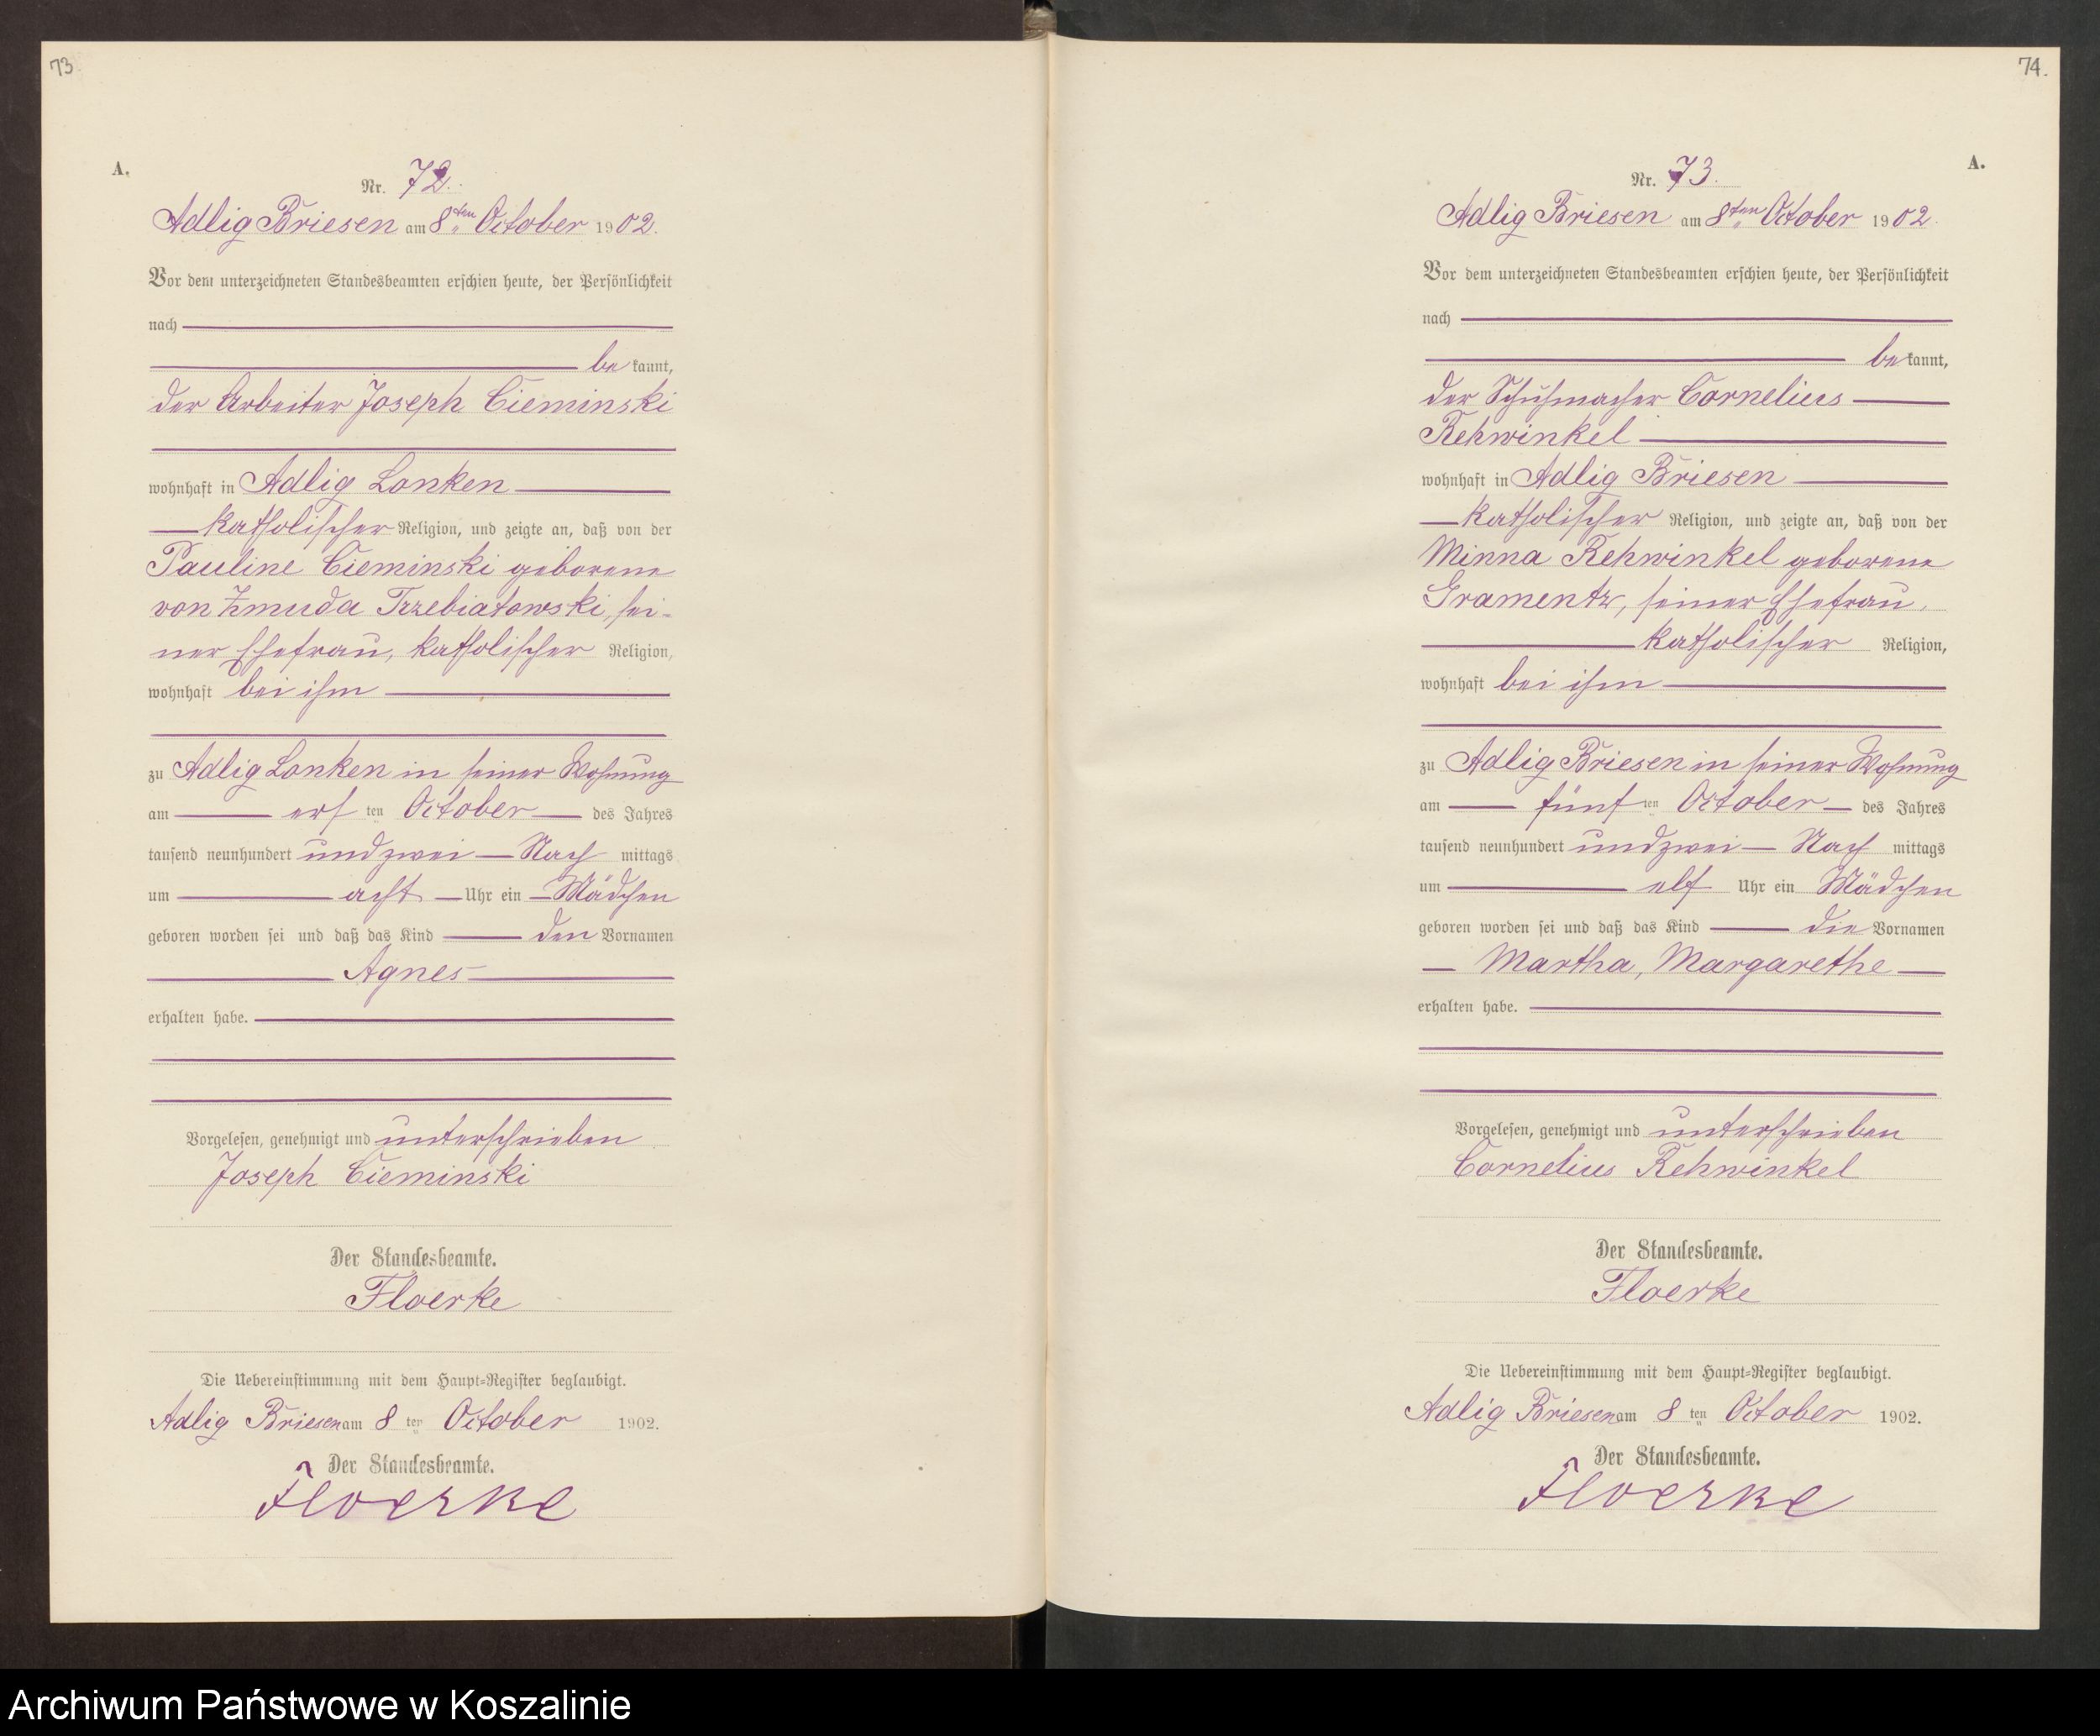 73
A.
Nr. 72.
Adlig Briesen am 8ten October 1902.
Vor dem unterzeichneten Standesbeamten erschien heute, der Persönlichkeit
nach
be kannt,
der Arbeiter Joseph Cieminski
wohnhaft in Adlig Lonken
katholischer Religion, und zeigte an, daß von der
Pauline Cieminski geborene
von Zmuda Trzebiatowski, sei-
ner Ehefrau, katholischer Religion,
wohnhaft bei ihm
zu Adlig Lonken in seiner Wohnung
am ten October des Jahres
tausend neunhundert und zwei Nach mittags
um acht Uhr ein Mädchen
geboren worden sei und daß das Kind den Vornamen
Agnes
erhalten habe.
Vorgelesen, genehmigt und unterschrieben
Joseph Cieminski
Der Standesbeamte.
Floerke
Die Uebereinstimmung mit dem Haupt-Register beglaubigt.
Adlig Briesen am 8 ten October 1902.
Der Standesbeamte.
Floerke
74.
A.
Nr. 73.
Adlig Briesen am 8ten October 1902.
Vor dem unterzeichneten Standesbeamten erschien heute, der Persönlichkeit
nach
be kannt,
der Schuhmacher Cornelius
Rehwinkel
wohnhaft in Adlig Briesen
katholischer Religion, und zeigte an, daß von der
Minna Rehwinkel geborene
Gramentz, seiner Ehefrau,
katholischer Religion,
wohnhaft bei ihm
zu Adlig Briesen in seiner Wohnung
am fünf ten October des Jahres
tausend neunhundert und zwei Nach mittags
um elf Uhr ein Mädchen
geboren worden sei und daß das Kind die Vornamen
Martha, Margarethe
erhalten habe.
Vorgelesen, genehmigt und unterschrieben
Cornelius Rehwinkel
Der Standesbeamte.
Floerke
Die Uebereinstimmung mit dem Haupt-Register beglaubigt.
Adlig Briesen am 8 ten October 1902.
Der Standesbeamte.
Floerke
Archiwum Państwowe w Koszalinie